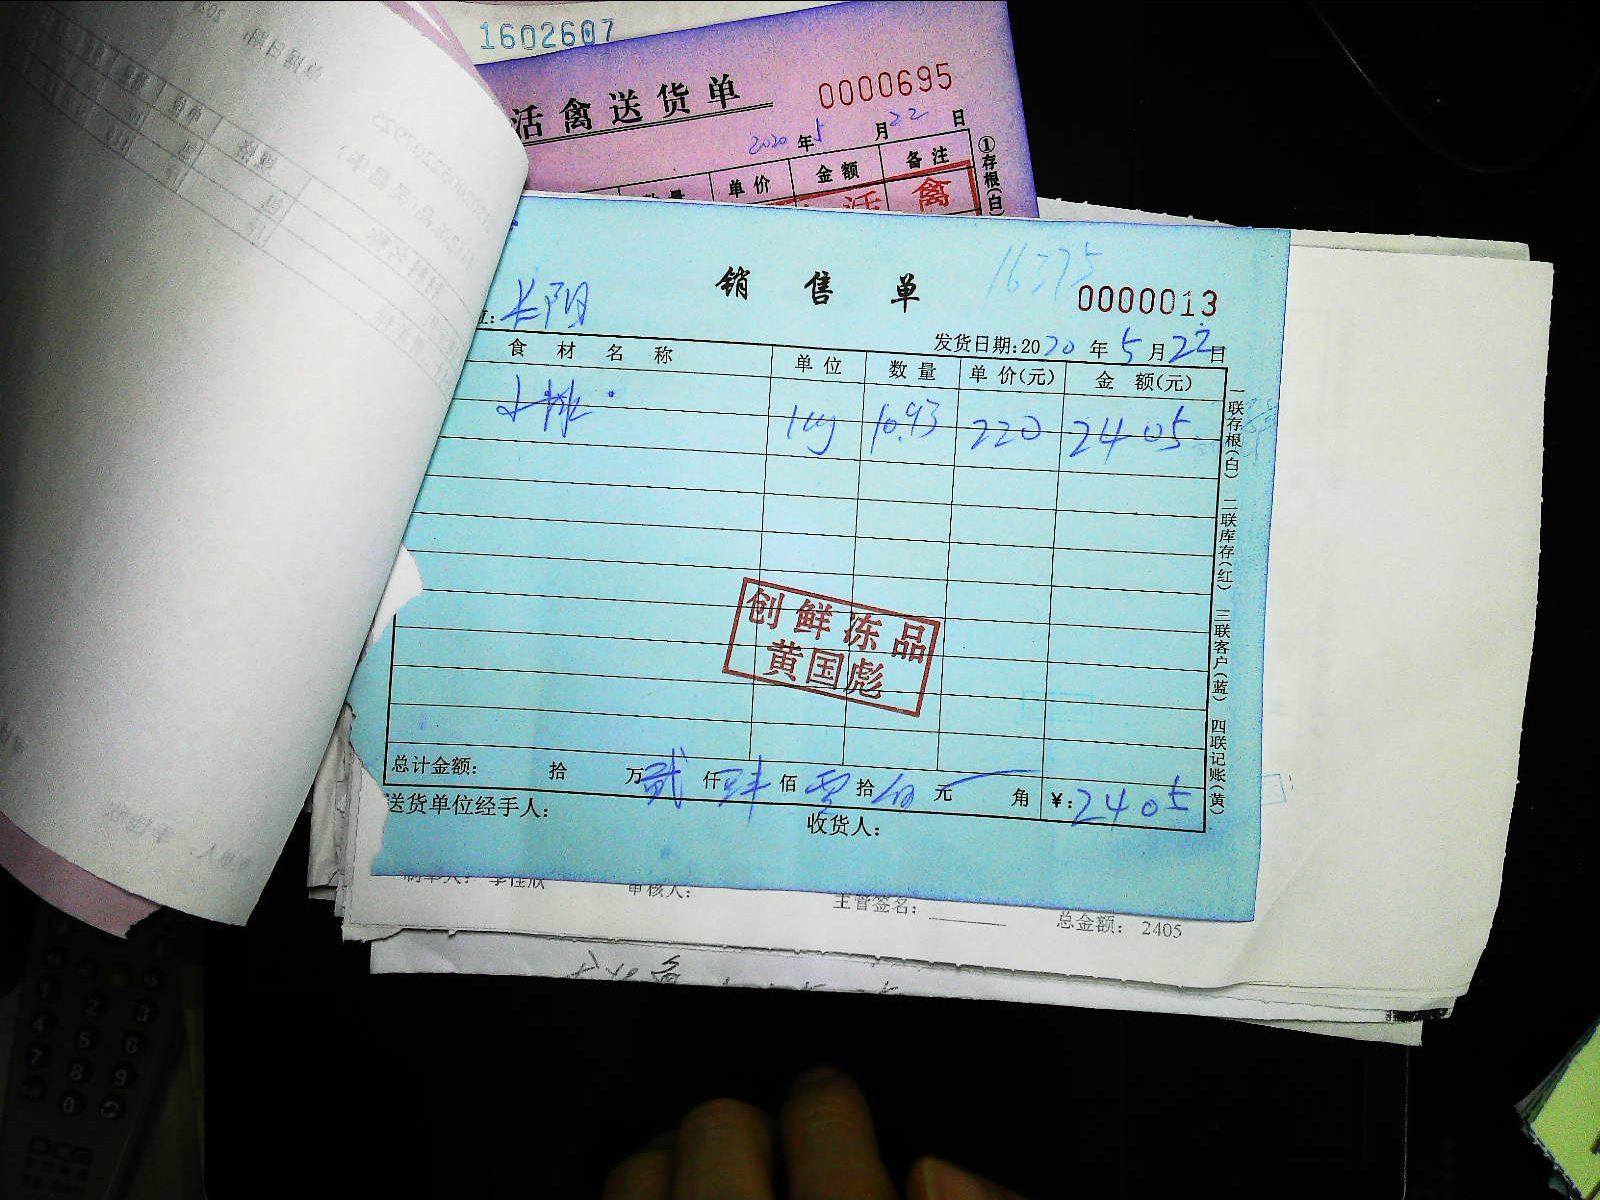 1602607
活禽送货单 0000695
2020年5月22日
数量 单价 金额 备注
①存根(白)
活禽
16375
销售单 0000013
长阳
发货日期:2020年5月22日
食材名称 单位 数量 单价(元) 金额(元)
1kg 10.93 220 2405
一联存根(白) 二联库存(红) 三联客户(蓝) 四联记账(黄)
创鲜冻品
黄国彪
总计金额: 拾 万 贰 仟 肆 佰 零 拾 伍 元 角 ¥:2405
送货单位经手人: 收货人:
制单人: 李佳欣 审核人: 主管签名: 总金额: 2405